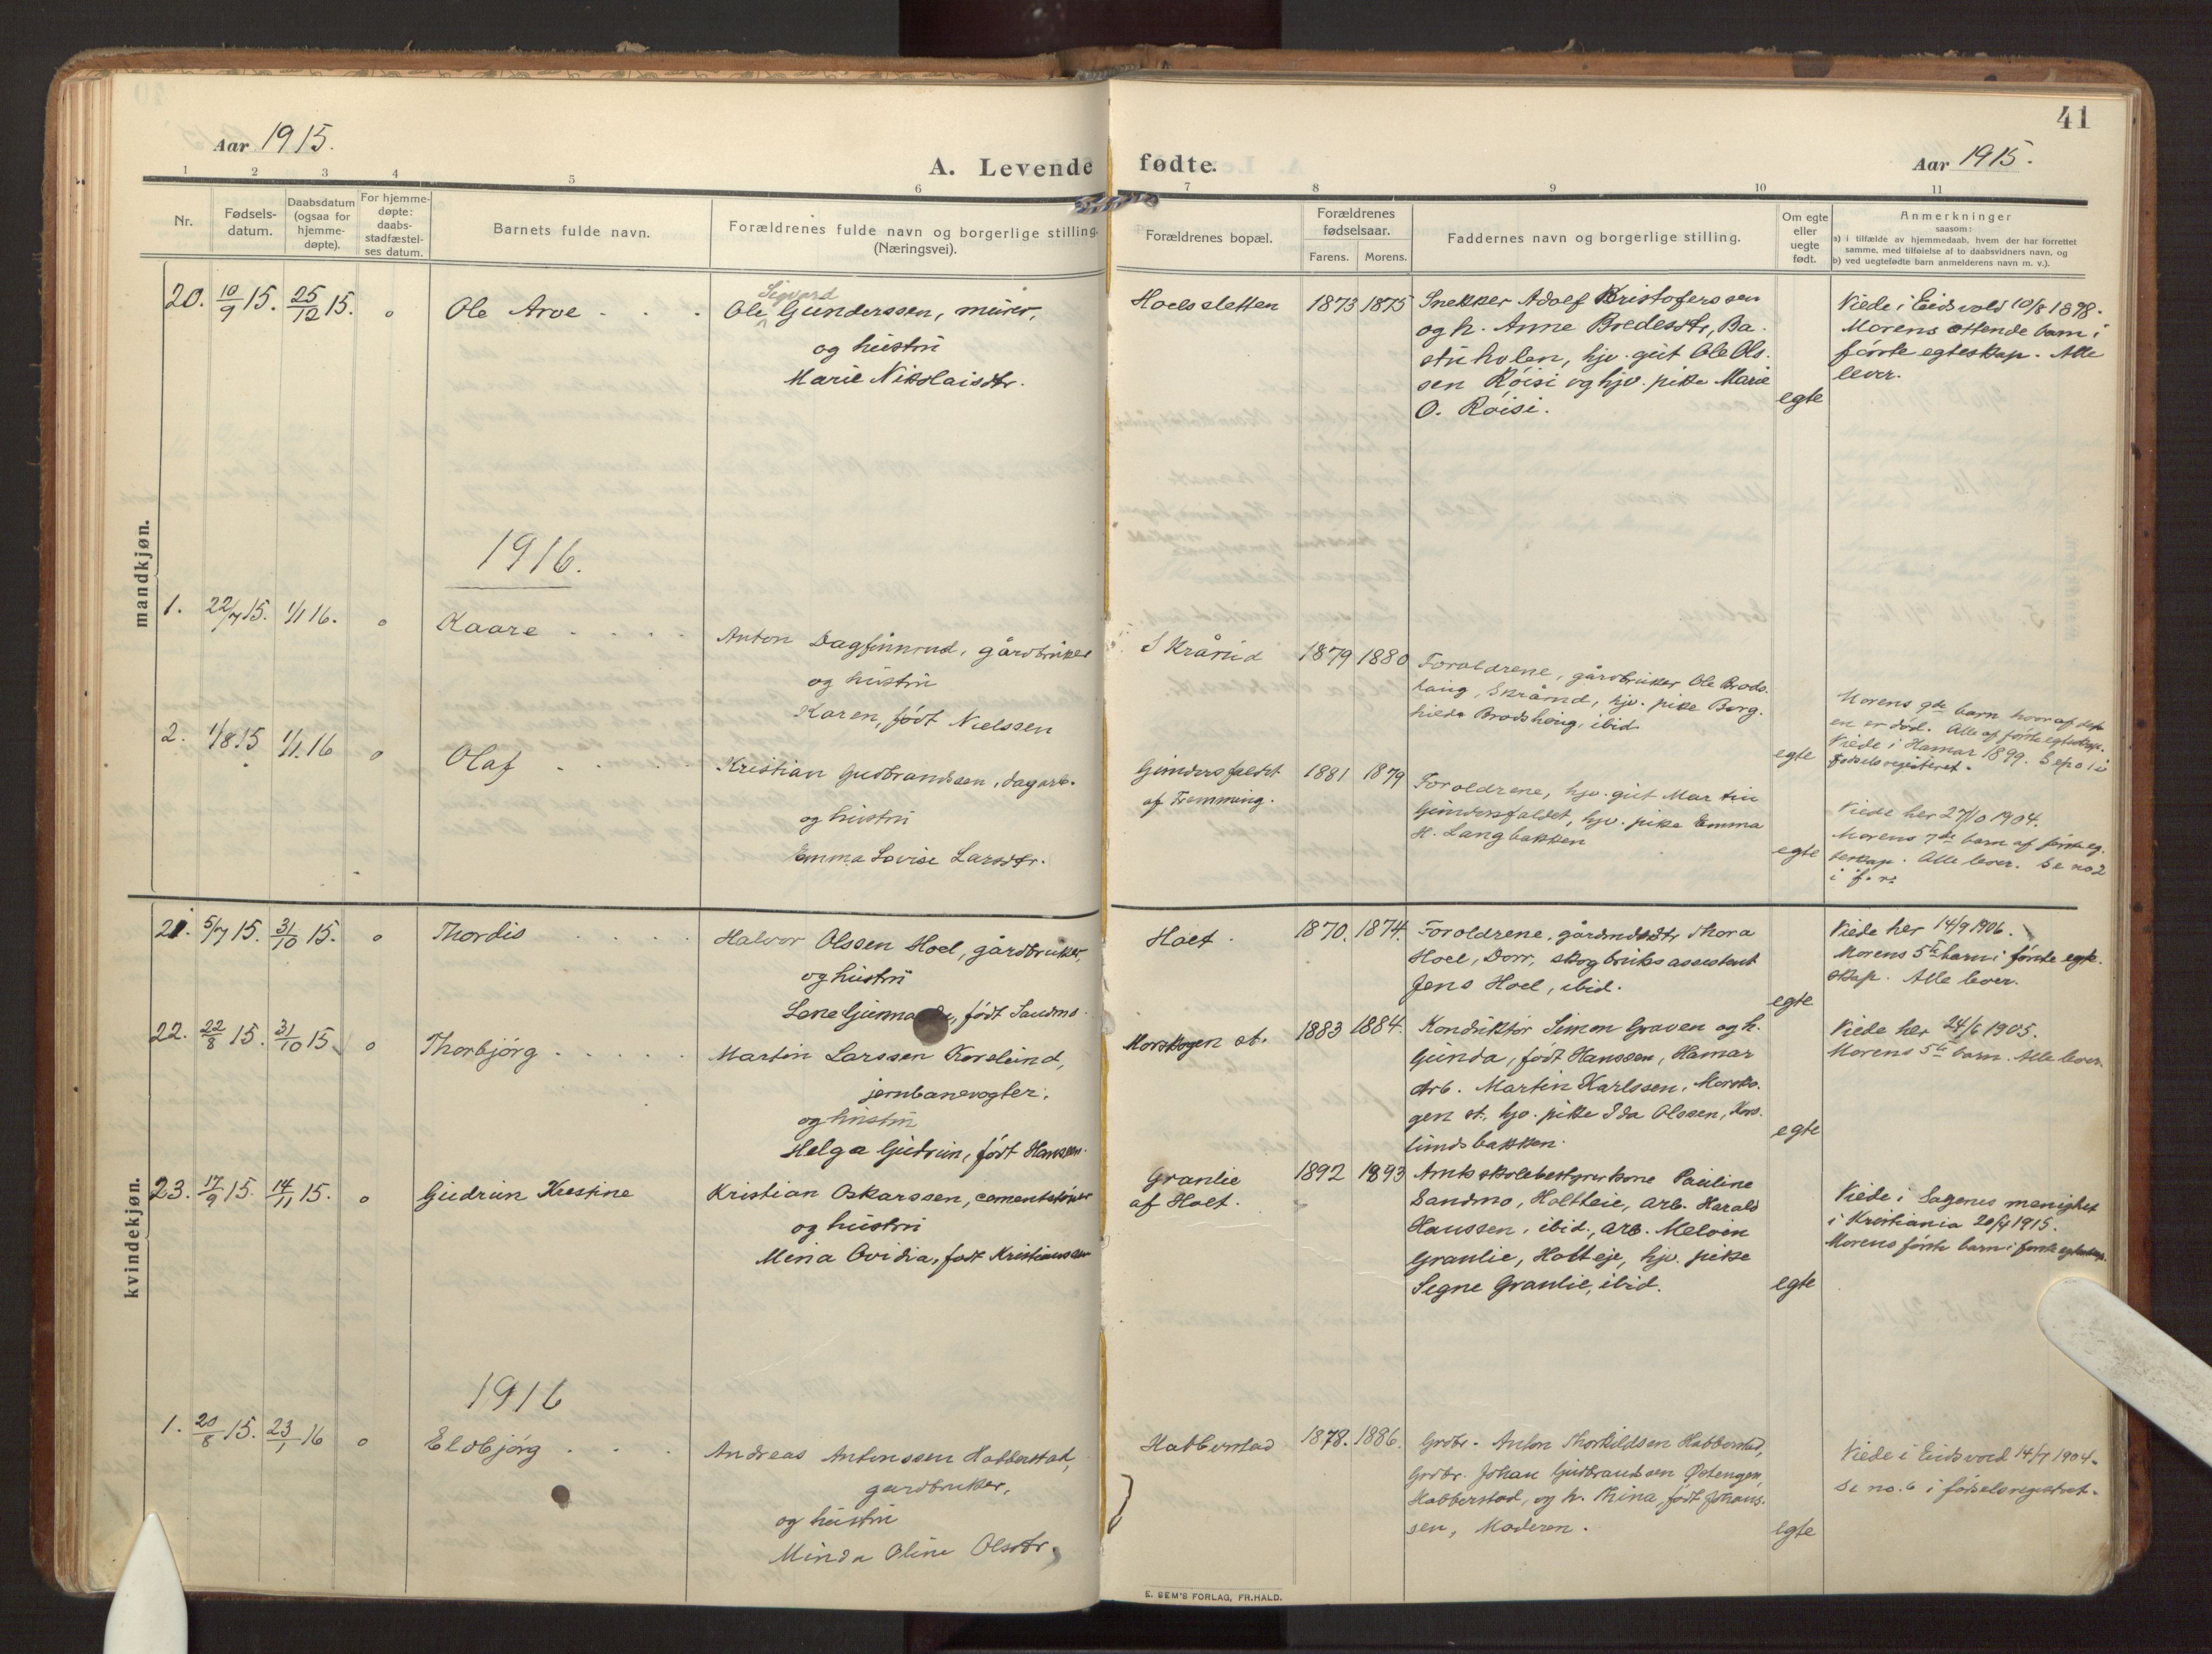 41
Aar 1915.
A. Levende fødte.
Aar 1915.
1 2 3 4 5 6 7 8 9 10 11
Nr.
Fødsels-
datum.
Daabsdatum
(ogsaa for
hjemme-
døpte).
For hjemme-
døpte:
daabs-
stadfæstel-
ses datum.
Barnets fulde navn.
Forældrenes fulde navn og borgerlige stilling.
(Næringsvei).
Forældrenes bopæl.
Forældrenes
fødselsaar.
Farens. Morens.
Faddernes navn og borgerlige stilling.
Om egte
eller
uegte
født.
Anmerkninger
saasom:
a) i tilfælde av hjemmedaab, hvem der har forrettet
samme, med tilføielse af to daabsvidners navn, og
b) ved uegtefødte barn anmelderens navn m. v.).
mandkjøn.
20. 10/9 15. 25/12 15. o Ole Arve
Sigvard
Ole Gunderssen, murer,
og hustru
Marie Nikolaisdtr.
Hoelssletten 1873 1875
Snekker Adolf Kristoferssen
og h. Anne Bredesdtr, Ba-
stuholen, hjv. gut Ole Ols-
sen Røisi og hjv. pike Marie
O. Røisi.
egte
Viede i Eidsvold 10/8 1898.
Morens ottende barn i
første egteskap. Alle
lever.
1916.
1. 22/7 15. 1/1 16. o Kaare
Anton Dagfinnrud, gårdbruker
og hustru
Karen, født Nielssen
Skårud 1879 1880
Foroldrene, gårdbruker Ole Brods-
haug, Skårud, hjv. pike Borg-
hilda Brodshaug, ibid.
egte
Morens 9de barn hvoraf
en er død. Alle af første egteskap.
Viede i Hamar 1899. Se no 1 i
fødselsregisteret.
2. 1/8 15 1/1 16 o Olaf
Kristian Gudbrandssen, dagarb.
og hustru
Emma Lovise Larsdtr.
Gundersfaldet
af Fremming.
1881 1879
Foroldrene, hjv. gut Martin
Gundersfaldet, hjv. pike Emma
H. Langbakken
egte
Viede her 27/10 1904.
Morens 7de barn af første eg-
teskap. Alle lever. Se no 2
i f. r.
kvindekjøn.
21. 5/7 15. 31/10 15. o Thordis
Halvor Olssen Hoel, gårdbruker,
og hustru
Lene født Sandmo.
Holt. 1870. 1874.
Foroldrene, gårdmdsdtr Thora
Hoel, Dorr, skogbruksassistent
Jens Hoel, ibid.
egte
Viede her 14/9 1906.
Morens 5te barn i første egte-
skap. Alle lever.
22. 22/8 15. 31/10 15 o Thorbjørg
Martin Larssen Korslund,
jernbanevogter,
og hustru
Helga Gudrun, født Hanssen.
Morskogen st. 1883 1884.
Konduktør Simon Graven og h.
Gunda, født Hanssen, Hamar
Arb. Martin Karlssen, Morsko-
gen st, hjv. pike Ida Olssen, Kors-
lundsbakken.
egte
Viede her 24/6 1905.
Morens 5te barn. Alle lever.
23. 17/9 15. 14/11 15. o Gudrun Kristine
Kristian Oskarssen, cementstøper
og hustru
Mina Ovidia, født Kristianssen
Granlie
af Holt.
1892 1893
Amtsskolebestyrerkone Pauline
Sandmo, Holtleie, arb. Harald
Hanssen, ibid., arb. Melvin
Granlie, Holteje, hjv. pike
Segne Granlie, ibid.
egte
Viede i Sagenes menighet
i Kristiania 20/4 1915.
Morens første barn i første egteskap.
1916
1. 20/8 15. 23/1 16 o Eldbjørg
Andreas Antonssen Habberstad,
gardbruker,
og hustru
Minda Oline Olsdtr.
Habberstad 1878. 1886.
Grdbr. Anton Thorkildsen Habberstad,
Grdbr. Johan Gudbrandsen Østengen,
Habberstad, og h. Mina, født Johans-
sen, Moderen.
egte
Viede i Eidsvold 14/7 1904.
Se no. 6 i fødselsregistret.
E. SEM'S FORLAG, FR.HALD.